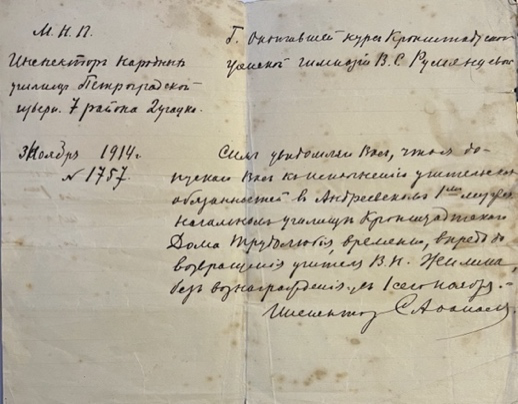 М. Н. П.
Инспекторъ народныхъ
училищъ Петроградской
губерн. 7 района
3 Ноябрь 1914 г.
№ 1757.
Г. Окончившей курсъ Кронштадтской
женской гимназіи В. С. Румянцевой
Симъ увѣдомляю Васъ, что я до-
пускаю Васъ къ исполненію учительскихъ
обязанностей в Андреевскомъ 1м
начальномъ училищѣ Кронштадтскаго
Дома Трудолюбія временно, впредь до
возвращенія учителя В. Н. Жилина,
безъ вознагражденія, съ 1 сего ноября.-
Инспектор